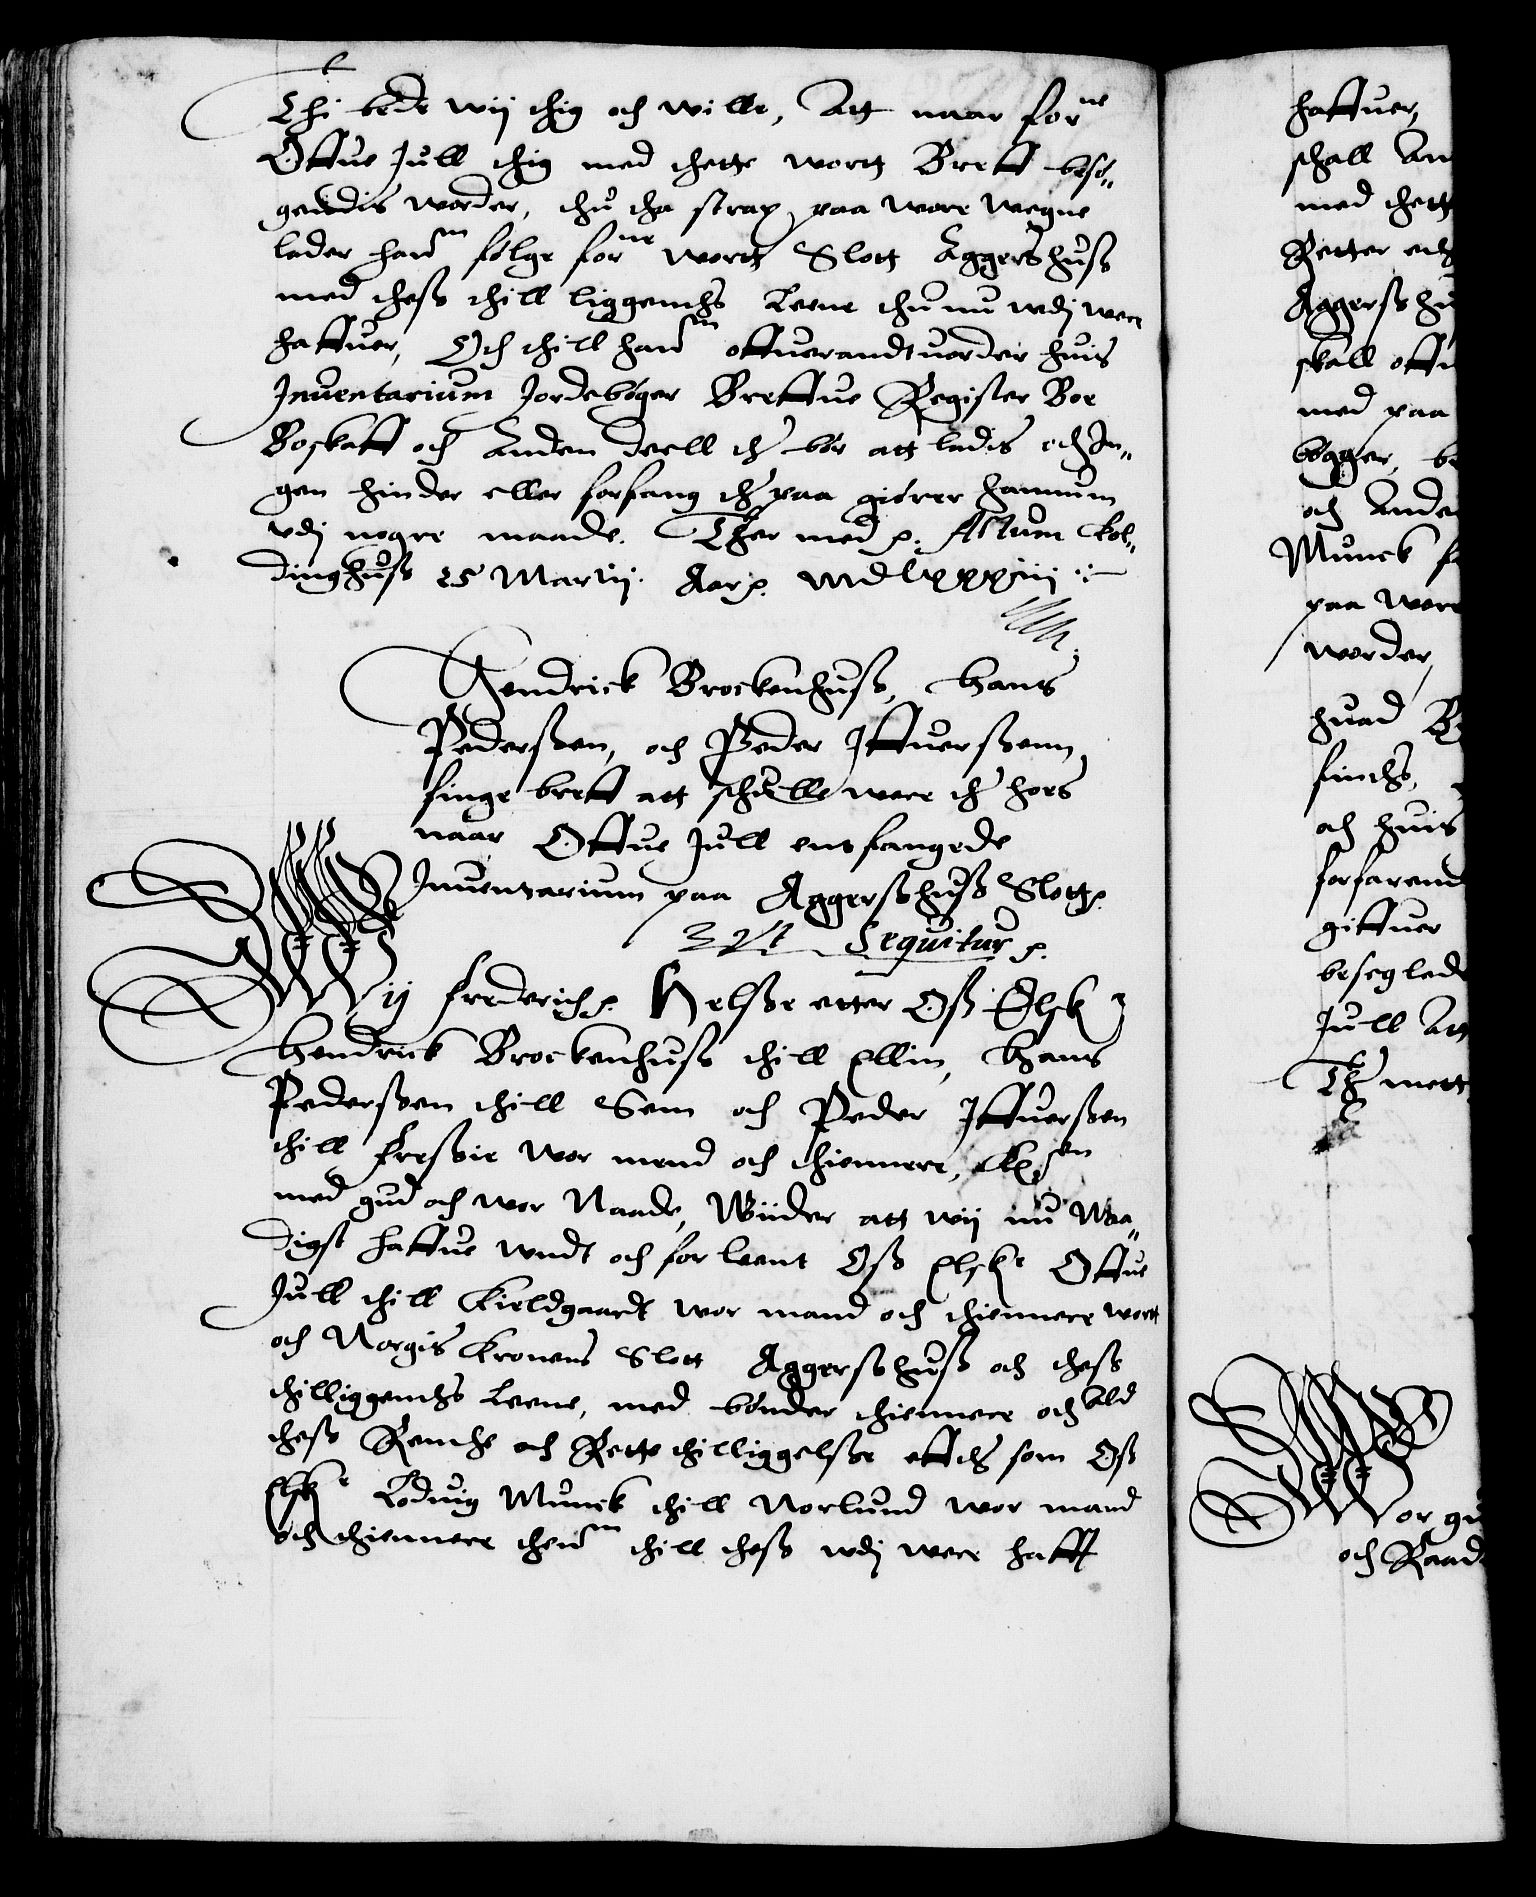 Thi bede wij thig och wille, Att naar for^ne
Ottue Jull thig med thette wortt Breff besø„
gendis worder, thu tha strax paa wore wegne
lader han^m følge for^ne wortt Slott Aggershuss
med thess thill liggendis Leene thu nu udj were
haffuer, Och thill han^m offuerandtuorder huis
Inuentarium Jordebøger Breffue Register Boe
Boskaff och Anden deell ther bør att ladis och In„
gen hinder eller forfang ther paa giører hannum
udj nogre maade. Ther med p. Actum Kol„
dinghuss 25 Martij. Aar p. mdlxxxiii
Hendrick Brockenhuss, Hans
Pederssen, och Peder Iffuerssenn
finge breff att schulle were ther hoes
naar Ottue Jull entfangede
Inuentarium paa Aggersshuss Slott p.
Vt Sequitur p.
Wij Frederich p. Helsse etter Oss Elsk^e
Hendrick Brockenhuss thill Ellin, Hans
Pederssen thill Sem och Peder Iffuerssen
thill Fressie wor mend och thiennere,
med gud och wor Naade, Wiider att wij nu Naa„
digst haffue undt och forleent Oss Elsk^e Ottue
Jull thill Kieldgaardt wor mand och thiennere wort
och Norgis Kronens Slott Aggersshuss och thess
thilliggendis Leene, med bønder thiennere och ald
thess Rennthe och Rette thilliggelsse effther som Oss
Elsk^e Loduig Munck thill Norlund wor mand
och thiennere then^m thill thess udj were hafft
haffuer,
schall An
med thette
Retter
Aggerss hu
skall offu
med paa
bøgger, be
och Ande
Munck
paa wore
worder,
huad B
findis,
och huis
forfarend
giffuer
beseglede
Jull Att
Ther mett
Wor gu
och Raad